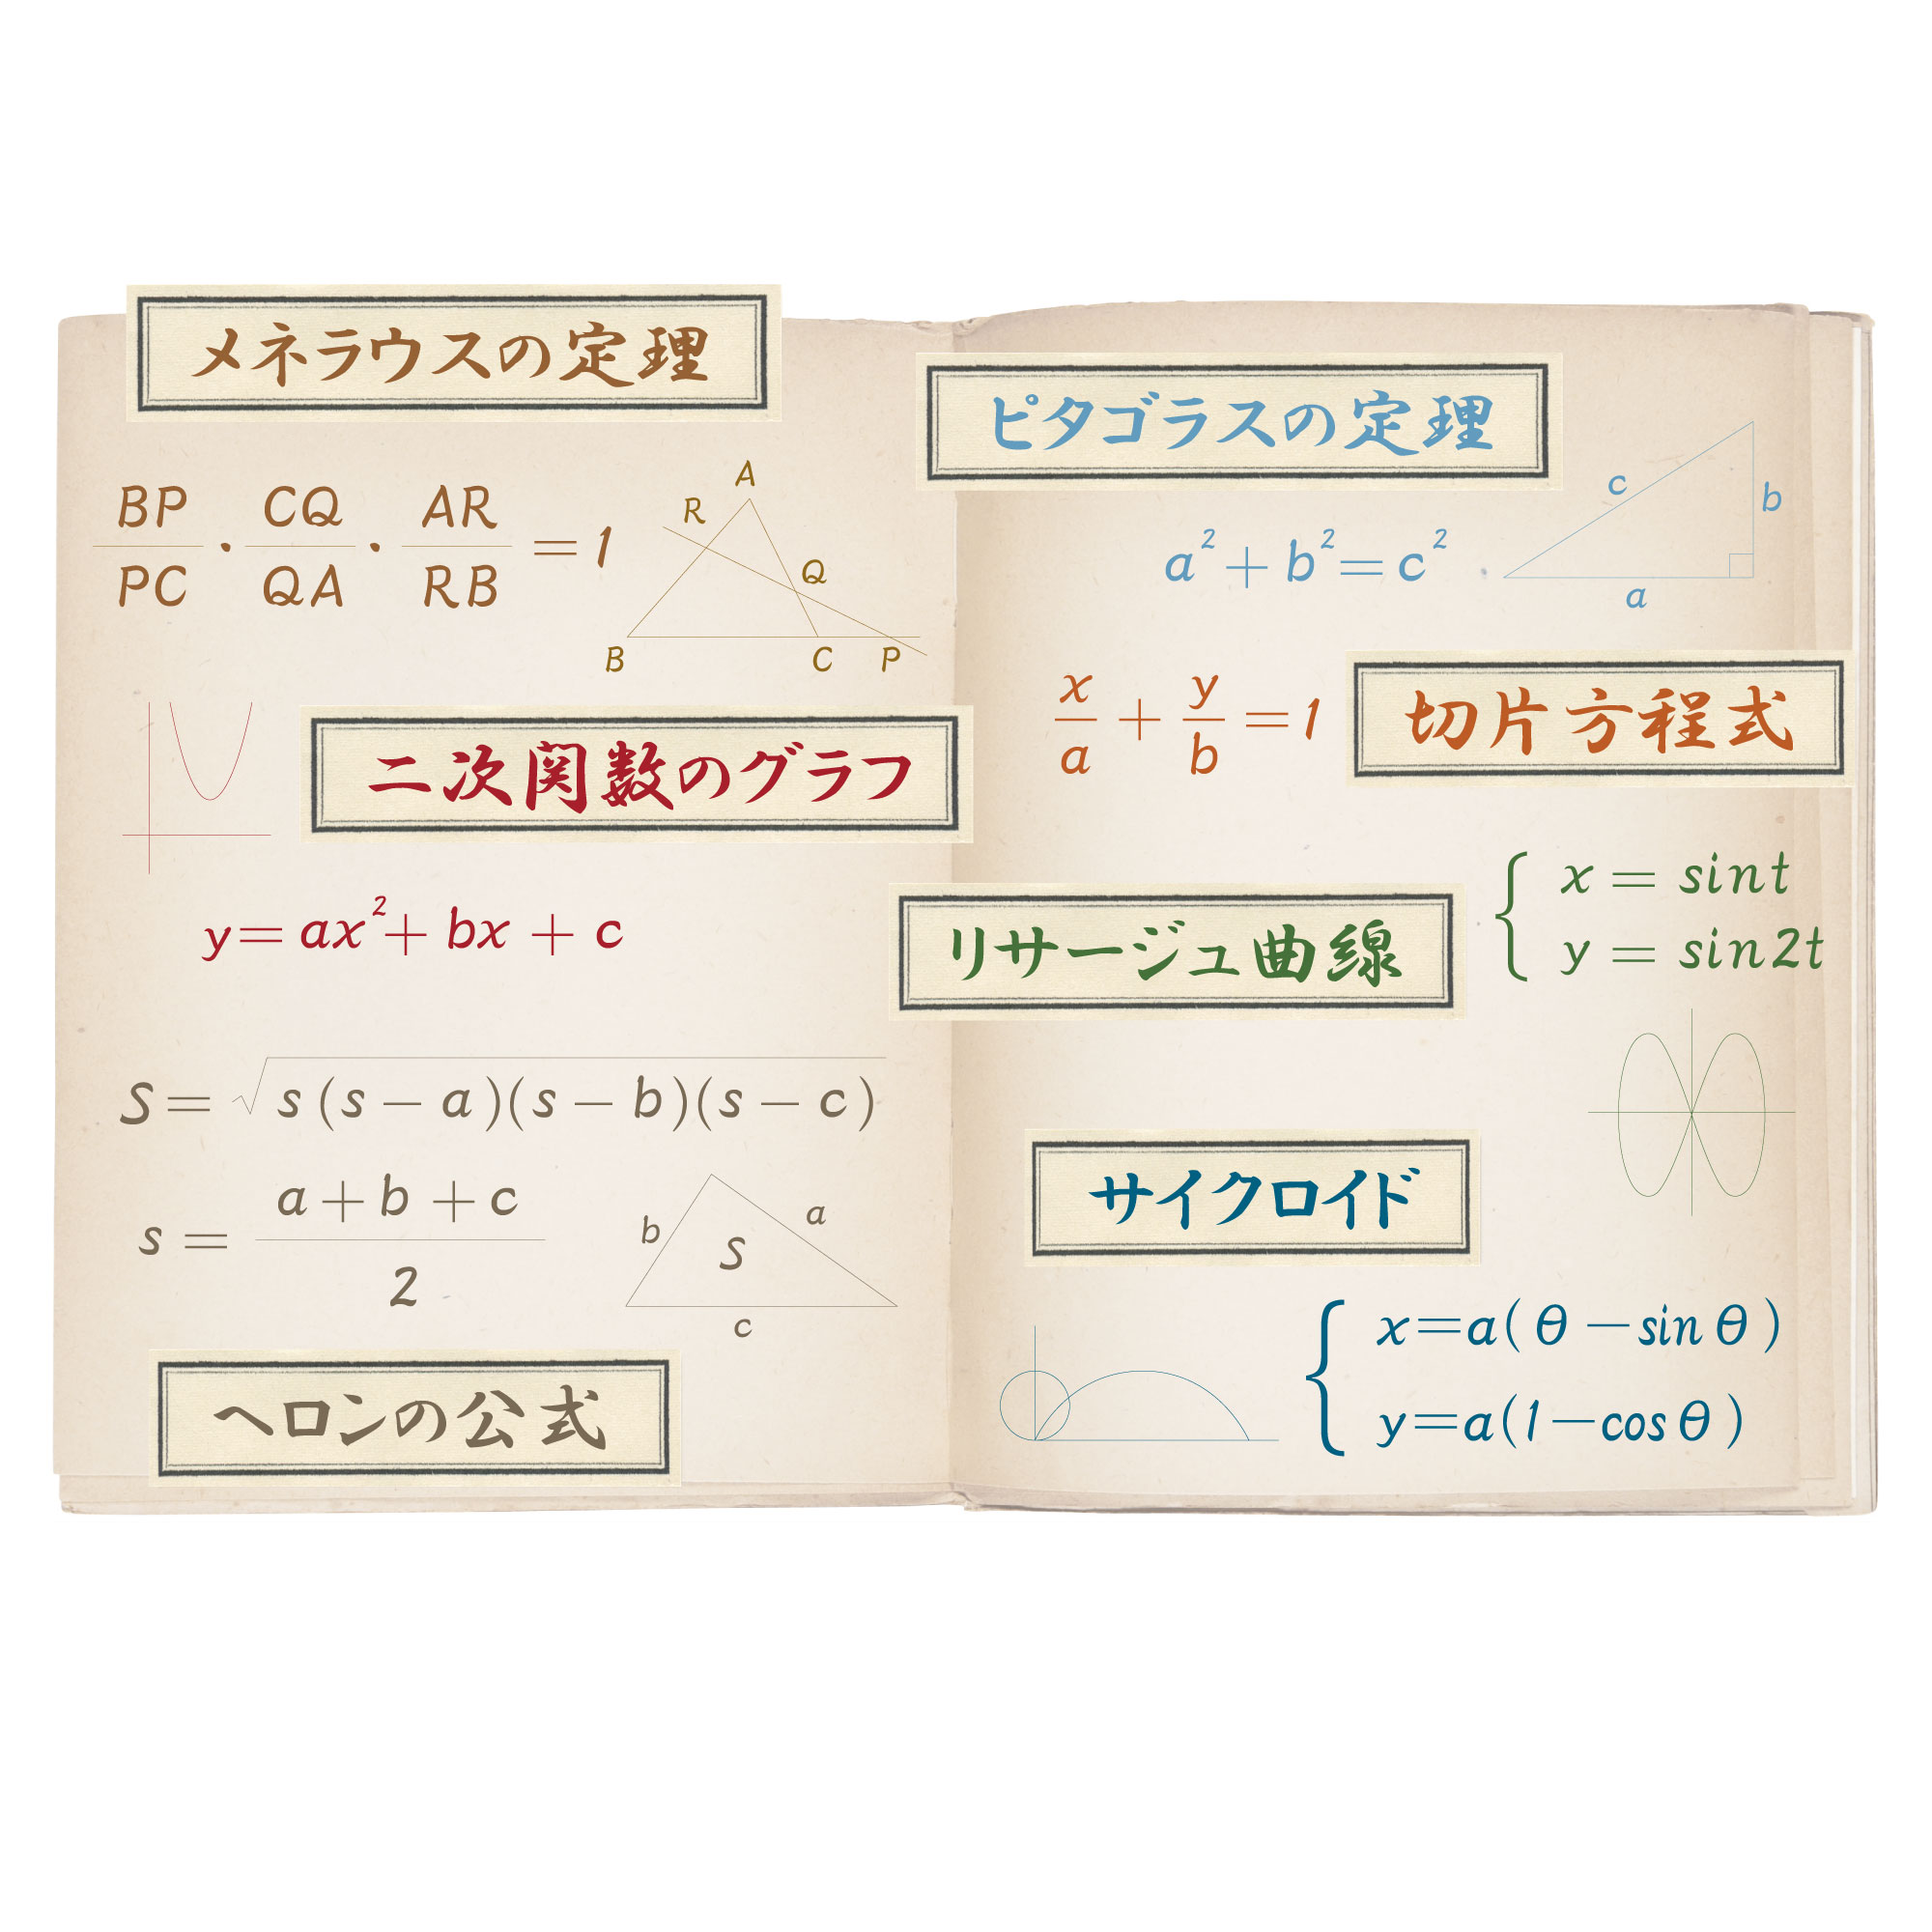 メネラウスの定理
BP/PC・CQ/QA・AR/RB = 1
A
R
Q
B C P
二次関数のグラフ
y = ax² + bx + c
S = √s(s − a)(s − b)(s − c)
s = (a + b + c)/2
b a
S
c
ヘロンの公式
ピタゴラスの定理
c b
a² + b² = c²
a
x/a + y/b = 1
切片方程式
リサージュ曲線
x = sint
y = sin2t
サイクロイド
x=a(θ−sinθ)
y=a(1−cosθ)